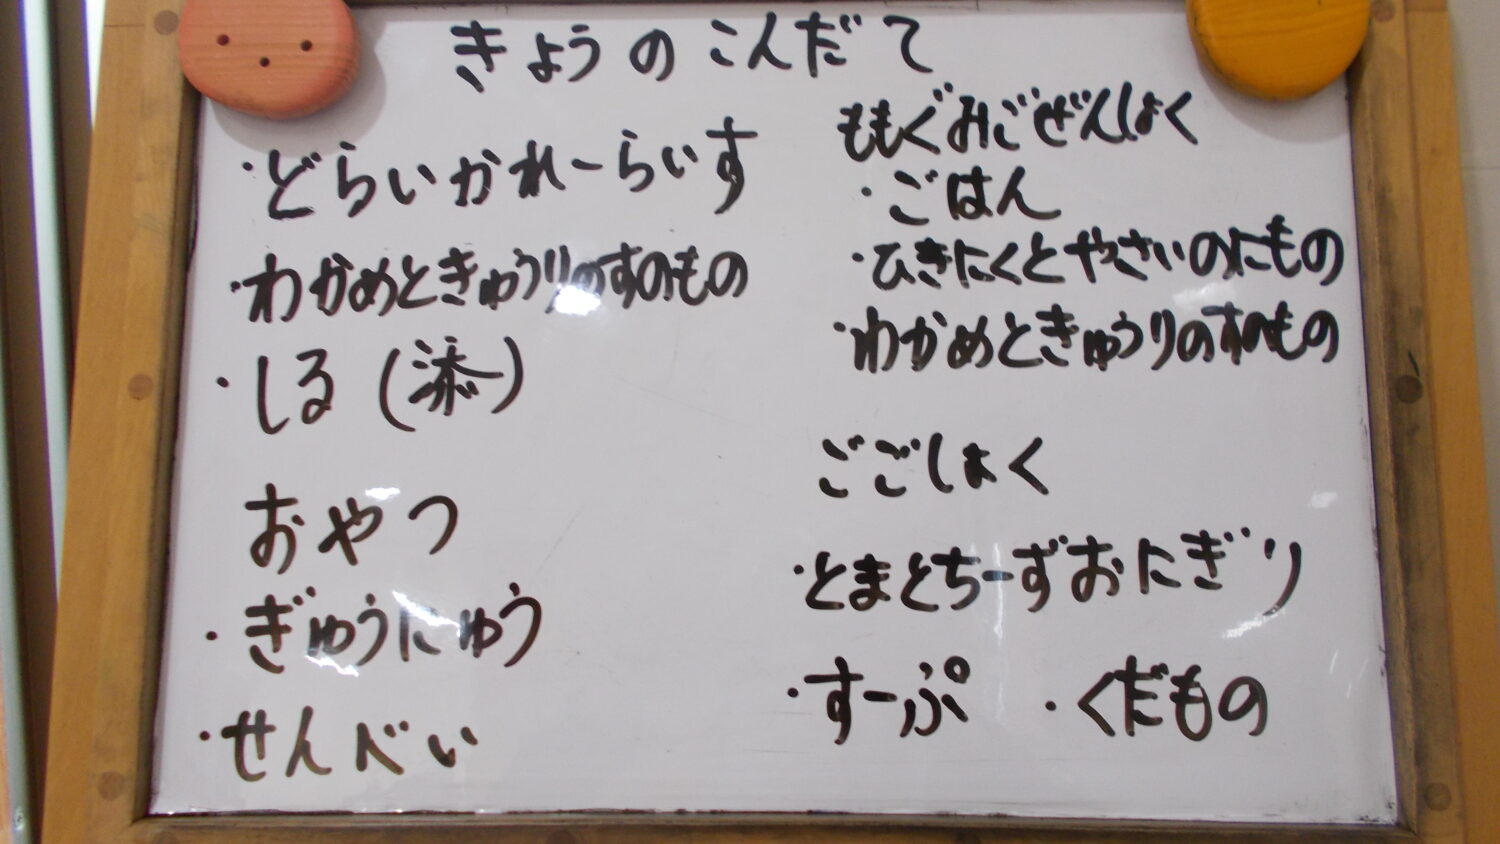 きょうのこんだて
・どらいかれーらいす
・わかめときゅうりのすのもの
・しる(添)
おやつ
・ぎゅうにゅう
・せんべい
ももぐみごぜんしょく
・ごはん
・ひきにくとやさいのにもの
・わかめときゅうりのすのもの
ごごしょく
・とまとちーずおにぎり
・すーぷ ・くだもの